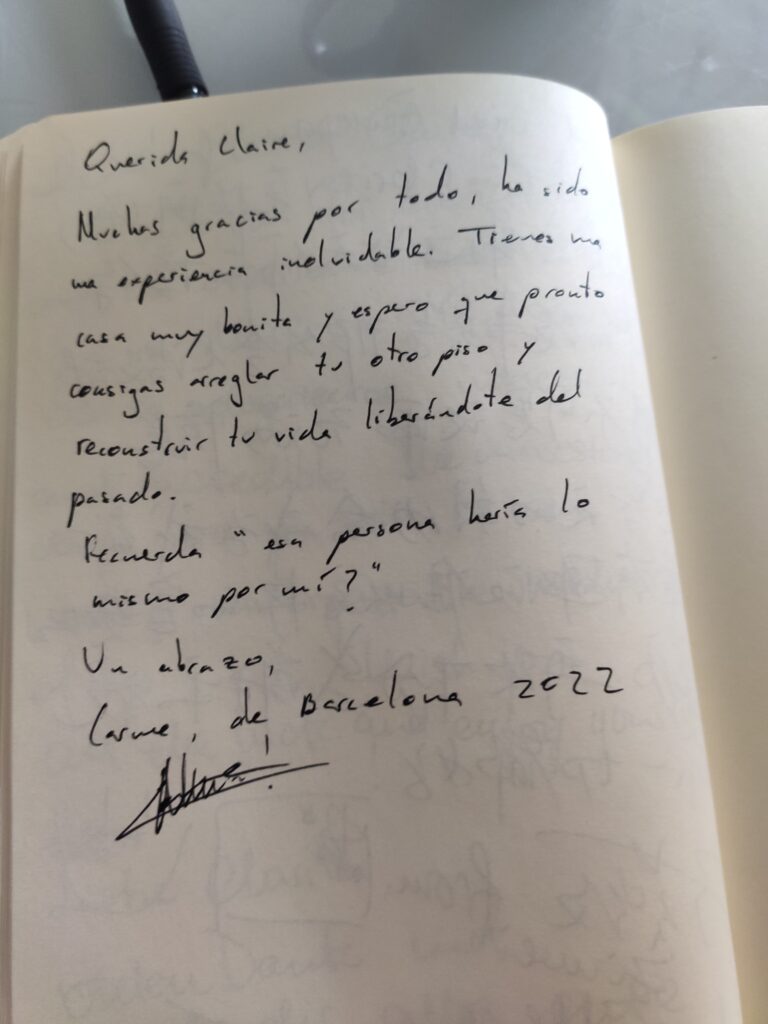 Querida Claire,
Muchas gracias por todo, ha sido
una experiencia inolvidable. Tienes una
casa muy bonita y espero que pronto
consigas arreglar tu otro piso y
reconstruir tu vida liberándote del
pasado.
Recuerda "esa persona haría lo
mismo por mí?"
Un abrazo,
Carme, de Barcelona 2022